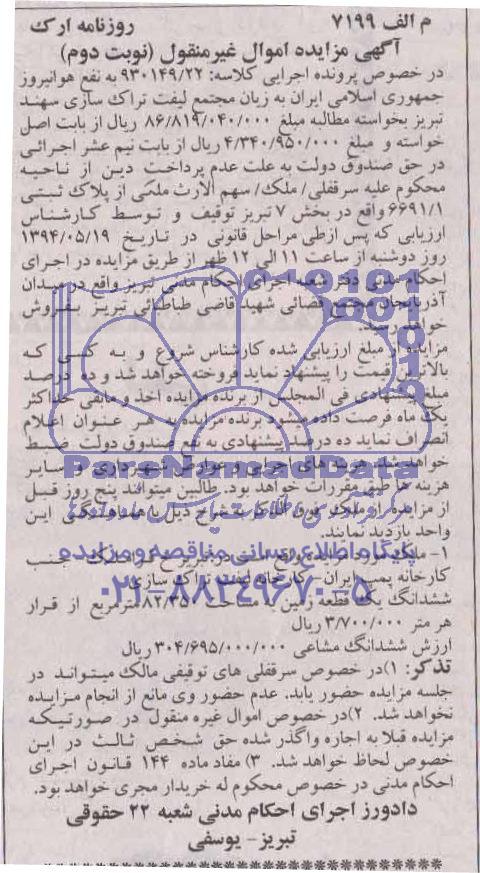 م الف ۷۱۹۹
روزنامه ارک
آگهی مزایده اموال غیرمنقول (نوبت دوم)
در خصوص پرونده اجرایی کلاسه: ۹۳۰۱۴۹/۲۲ به نفع هوانیروز
جمهوری اسلامی ایران به زیان مجتمع لیفت تراک سازی سهند
تبریز بخواسته مطالبه مبلغ ۸۶/۸۱۹/۰۴۰/۰۰۰ ریال از بابت اصل
خواسته و مبلغ ۴/۳۴۰/۹۵۰/۰۰۰ ریال از بابت نیم عشر اجرائی
در حق صندوق دولت به علت عدم پرداخت دین از ناحیه
محکوم علیه سرقفلی/ ملک/ سهم الارث ملکی از پلاک ثبتی
۶۶۹۱/۱ واقع در بخش ۷ تبریز توقیف و توسط کارشناس
ارزیابی که پس ازطی مراحل قانونی در تاریخ ۱۳۹۴/۰۵/۱۹
روز دوشنبه از ساعت ۱۱ الی ۱۲ ظهر از طریق مزایده در اجرای
احکام مدنی دفتر شعبه اجرای احکام مدنی تبریز واقع در میدان
آذربایجان مجتمع قضائی شهید قاضی طباطبائی تبریز بفروش
خواهد رسید.
مزایده از مبلغ ارزیابی شده کارشناس شروع و به کسی که
بالاترین قیمت را پیشنهاد نماید فروخته خواهد شد و ده درصد
مبلغ پیشنهادی فی المجلس از برنده مزایده اخذ و مابقی حداکثر
یک ماه فرصت داده میشود برنده مزایده به هر عنوان اعلام
انصراف نماید ده درصد پیشنهادی به نفع صندوق دولت ضبط
خواهد شد. هزینه های اجرایی و عوارض شهرداری و سایر
هزینه ها طبق مقررات خواهد بود. طالبین میتوانند پنج روز قبل
از مزایده از ملک فوق الذکر به شرح ذیل با هماهنگی این
واحد بازدید نمایند.
۱- ملک مورد مزایده واقع است در: تبریز جنب
کارخانه پمپ ایران - کارخانه لیفت تراک سازی
ششدانگ یک قطعه زمین به مساحت ۸۲/۳۵۰ مترمربع از قرار
هر متر ۳/۷۰۰/۰۰۰ ریال
ارزش ششدانگ مشاعی ۳۰۴/۶۹۵/۰۰۰/۰۰۰ ریال
تذکر: ۱)در خصوص سرقفلی های توقیفی مالک میتواند در
جلسه مزایده حضور یابد. عدم حضور وی مانع از انجام مزایده
نخواهد شد. ۲)در خصوص اموال غیره منقول در صورتیکه
مزایده قبلا به اجاره واگذر شده حق شخص ثالث در این
خصوص لحاظ خواهد شد. ۳) مفاد ماده ۱۴۴ قانون اجرای
احکام مدنی در خصوص محکوم له خریدار مجری خواهد بود.
دادورز اجرای احکام مدنی شعبه ۲۲ حقوقی
تبریز- یوسفی
ParsNamadData
پایگاه اطلاع رسانی مناقصه و مزایده
۰۲۱-۸۸۳۴۹۶۷۰-۵